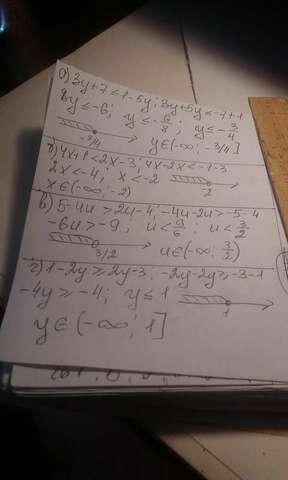 а) 3y+7≤1-5y; 3y+5y≤-7+1
8y≤-6; y≤-6/8; y≤-3/4
-3/4 y∈(-∞; -3/4]
б) 4x+1<2x-3; 4x-2x<-1-3
2x<-4; x<-2
2
x∈(-∞;-2)
в) 5-4u>2u-4; -4u-2u>-5-4
-6u>-9; u<9/6; u<3/2
3/2 u∈(-∞; 3/2)
г) 1-2y≥2y-3; -2y-2y≥-3-1
-4y≥-4; y≤1
1
y∈(-∞; 1]